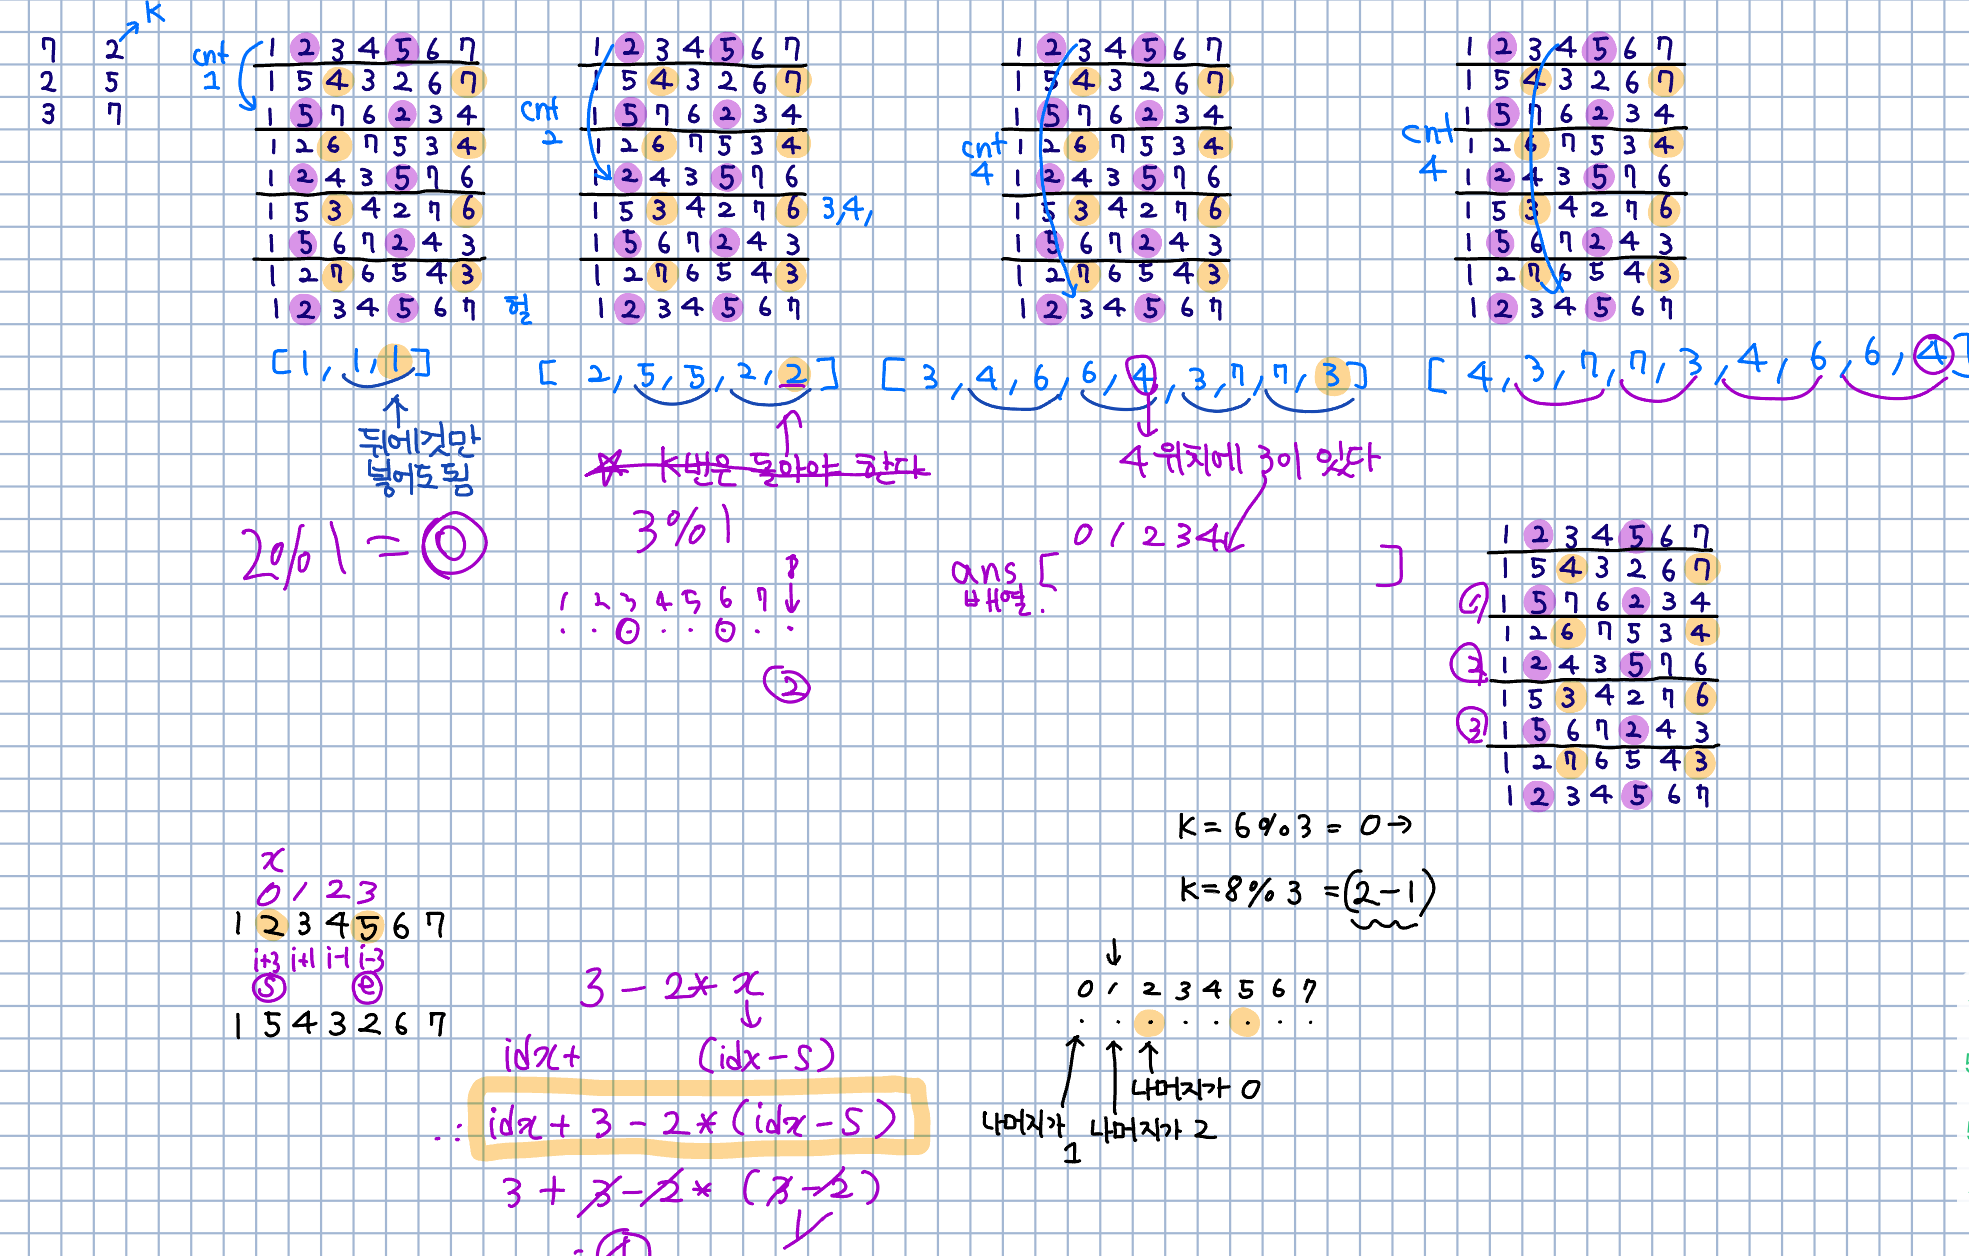 7 2 → K
2 5
3 7
cnt 1
1 2 3 4 5 6 7
1 5 4 3 2 6 7
1 5 7 6 2 3 4
1 2 6 7 5 3 4
1 2 4 3 5 7 6
1 5 3 4 2 7 6
1 5 6 7 2 4 3
1 2 7 6 5 4 3
1 2 3 4 5 6 7 헐
[1, 1, 1]
뒤에것만
넣어도 됨
2%1 = 0
cnt 2
1 2 3 4 5 6 7
1 5 4 3 2 6 7
1 5 7 6 2 3 4
1 2 6 7 5 3 4
1 2 4 3 5 7 6
1 5 3 4 2 7 6 3,4,
1 5 6 7 2 4 3
1 2 7 6 5 4 3
1 2 3 4 5 6 7
[2, 5, 5, 2, 2]
☆ K번은 돌아야 한다
3%1
8
1 2 3 4 5 6 7
2
cnt 4
1 2 3 4 5 6 7
1 5 4 3 2 6 7
1 5 7 6 2 3 4
1 2 6 7 5 3 4
1 2 4 3 5 7 6
1 5 3 4 2 7 6
1 5 6 7 2 4 3
1 2 7 6 5 4 3
1 2 3 4 5 6 7
[3, 4, 6, 6, 4, 3, 7, 7, 3]
4 위치에 3이 있다
0 1 2 3 4
ans [ ]
배열.
cnt 4
1 2 3 4 5 6 7
1 5 4 3 2 6 7
1 5 7 6 2 3 4
1 2 6 7 5 3 4
1 2 4 3 5 7 6
1 5 3 4 2 7 6
1 5 6 7 2 4 3
1 2 7 6 5 4 3
1 2 3 4 5 6 7
[4, 3, 7, 7, 3, 4, 6, 6, 4]
1 2 3 4 5 6 7
1 5 4 3 2 6 7
① 1 5 7 6 2 3 4
1 2 6 7 5 3 4
② 1 2 4 3 5 7 6
1 5 3 4 2 7 6
③ 1 5 6 7 2 4 3
1 2 7 6 5 4 3
1 2 3 4 5 6 7
K = 6%3 = 0 →
K = 8%3 = (2-1)
0 1 2 3 4 5 6 7
나머지가 0
나머지가 1
나머지가 2
x
0 1 2 3
1 2 3 4 5 6 7
i+3 i+1 i-1 i-3
s e
1 5 4 3 2 6 7
3 - 2* x
idx+ (idx-s)
∴ idx + 3 - 2*(idx-s)
3 + 3 - 2* (3-2)
1